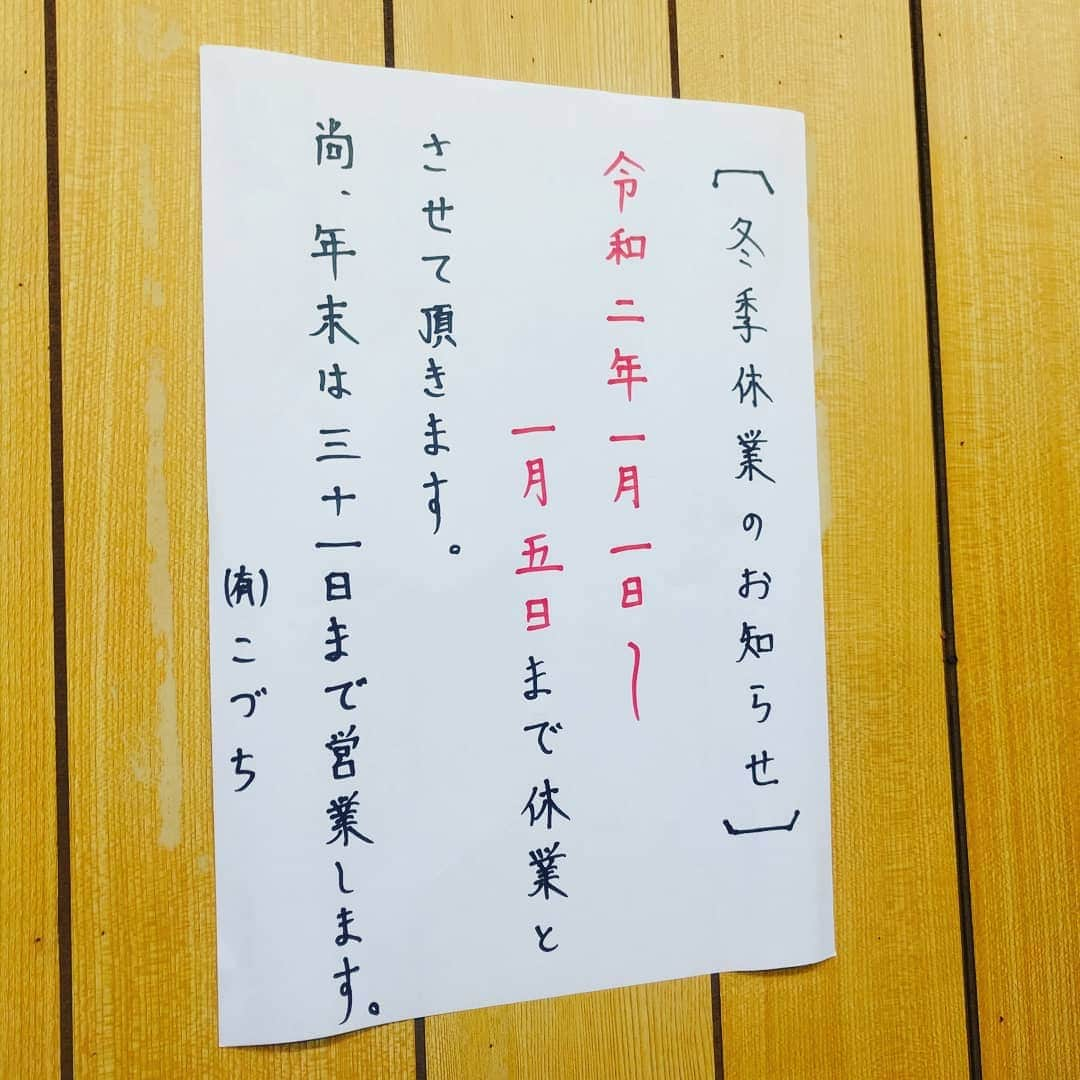 〔冬季休業のお知らせ〕
令和二年一月一日〜
一月五日まで休業と
させて頂きます。
尚、年末は三十一日まで営業します。
(有)こづち